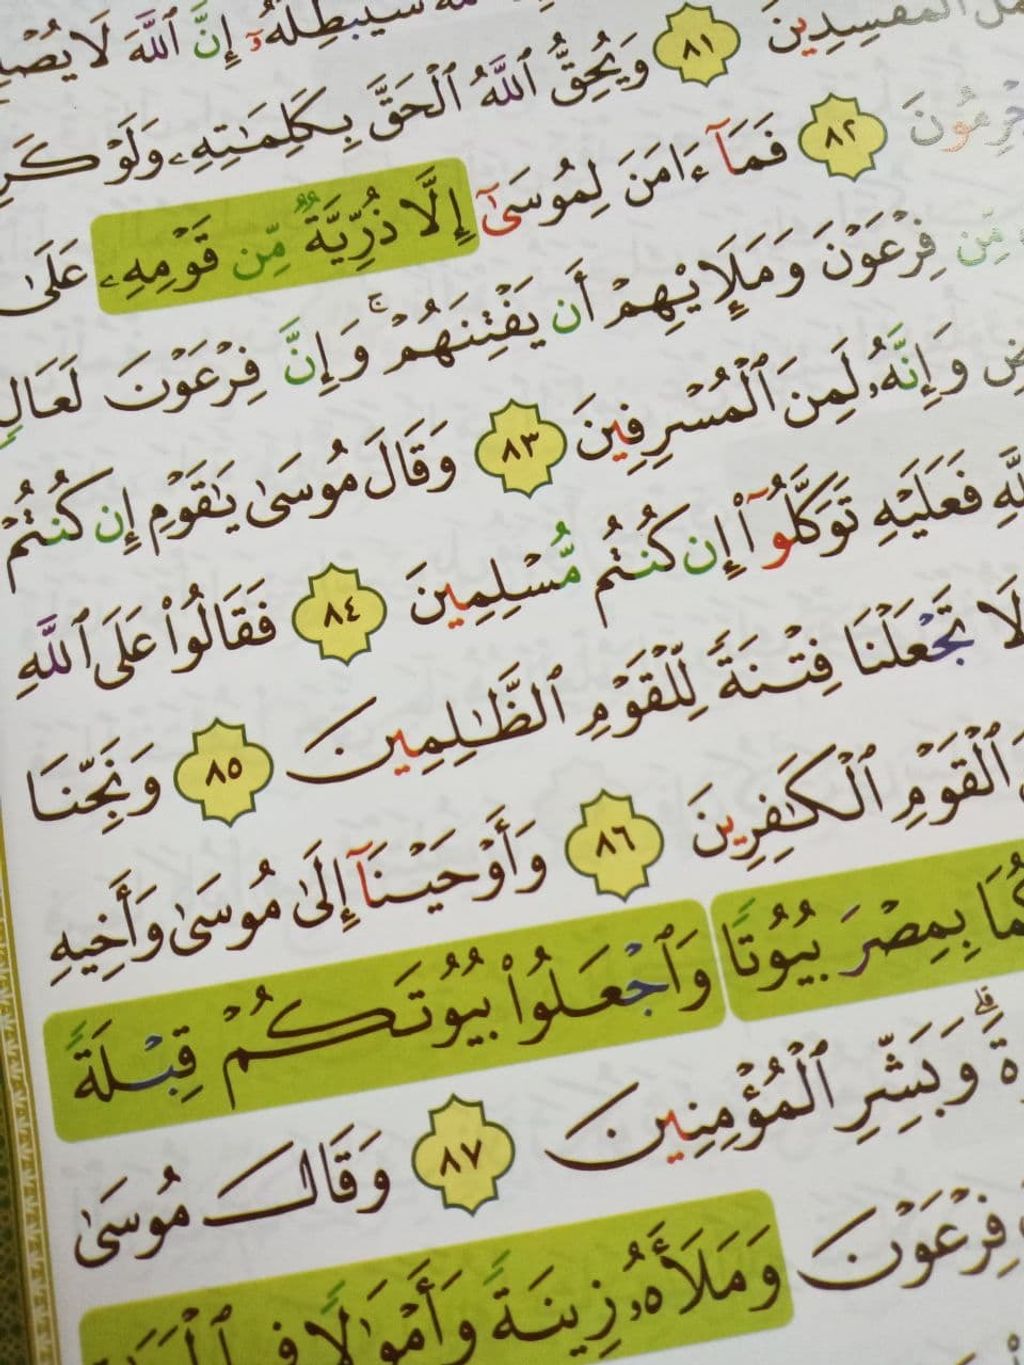 سَيُبْطِلُهُۥٓ إِنَّ ٱللَّهَ لَا
ٱلْمُفْسِدِينَ ٨١ وَيُحِقُّ ٱللَّهُ ٱلْحَقَّ بِكَلِمَٰتِهِۦ وَلَوْ
٨٢ فَمَآ ءَامَنَ لِمُوسَىٰٓ إِلَّا ذُرِّيَّةٌ مِّن قَوْمِهِۦ عَلَىٰ
مِّن فِرْعَوْنَ وَمَلَإِيْهِمْ أَن يَفْتِنَهُمْ ۚ وَإِنَّ فِرْعَوْنَ لَعَالٍ
وَإِنَّهُۥ لَمِنَ ٱلْمُسْرِفِينَ ٨٣ وَقَالَ مُوسَىٰ يَٰقَوْمِ إِن كُنتُمْ
فَعَلَيْهِ تَوَكَّلُوٓا۟ إِن كُنتُم مُّسْلِمِينَ ٨٤ فَقَالُوا۟ عَلَى ٱللَّهِ
لَا تَجْعَلْنَا فِتْنَةً لِّلْقَوْمِ ٱلظَّٰلِمِينَ ٨٥ وَنَجِّنَا
ٱلْقَوْمِ ٱلْكَٰفِرِينَ ٨٦ وَأَوْحَيْنَآ إِلَىٰ مُوسَىٰ وَأَخِيهِ
بِمِصْرَ بُيُوتًا وَٱجْعَلُوا۟ بُيُوتَكُمْ قِبْلَةً
وَبَشِّرِ ٱلْمُؤْمِنِينَ ٨٧ وَقَالَ مُوسَىٰ
فِرْعَوْنَ وَمَلَأَهُۥ زِينَةً وَأَمْوَٰلًا فِى